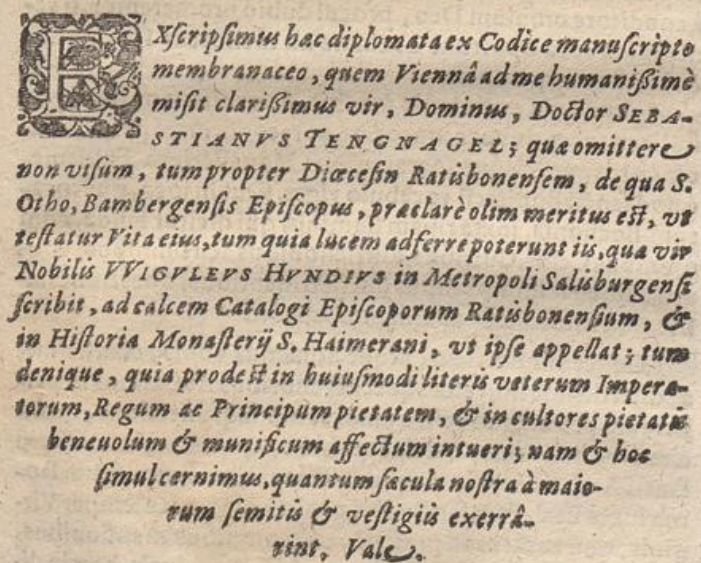 EXſcripſimus hæc diplomata ex Codice manuſcripto
membranaceo, quem Viennâ ad me humanißimè
miſit clarißimus vir, Dominus, Doctor SEBA-
STIANVS TENGNAGEL; quæ omittere
non viſum, tum propter Diœceſin Ratisbonenſem, de qua S.
Otho, Bambergenſis Epiſcopus, præclarè olim meritus eſt, vt
teſtatur Vita eius, tum quia lucem adferre poterunt iis, quæ vir
Nobilis VVIGVLEVS HVNDIVS in Metropoli Salisburgenſi
ſcribit, ad calcem Catalogi Epiſcoporum Ratisbonenſium, &
in Hiſtoria Monaſterij S. Haimerani, vt ipſe appellat; tum
denique, quia prodeſt in huiuſmodi literis veterum Impera-
torum, Regum ac Principum pietatem, & in cultores pietatis
beneuolum & munificum affectum intueri; nam & hoc
ſimul cernimus, quantum ſæcula noſtra à maio-
rum ſemitis & veſtigiis exerrâ-
rint. Vale.